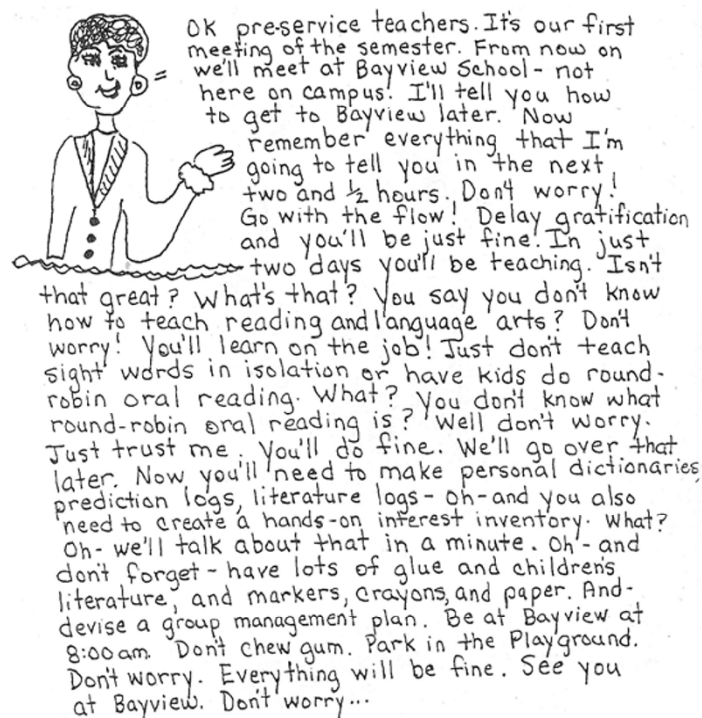 OK pre-service teachers. It's our first
meeting of the semester. From now on
we'll meet at Bayview School - not
here on campus! I'll tell you how
to get to Bayview later. Now
remember everything that I'm
going to tell you in the next
two and ½ hours. Don't worry!
Go with the flow! Delay gratification
and you'll be just fine. In just
two days you'll be teaching. Isn't
that great? What's that? You say you don't know
how to teach reading and language arts? Don't
worry! You'll learn on the job! Just don't teach
sight words in isolation or have kids do round-
robin oral reading. What? You don't know what
round-robin oral reading is? Well don't worry.
Just trust me. You'll do fine. We'll go over that
later. Now you'll need to make personal dictionaries,
prediction logs, literature logs - oh - and you also
need to create a hands-on interest inventory. What?
Oh - we'll talk about that in a minute. Oh - and
don't forget - have lots of glue and children's
literature, and markers, crayons, and paper. And -
devise a group management plan. Be at Bayview at
8:00 am. Don't chew gum. Park in the Playground.
Don't worry. Everything will be fine. See you
at Bayview. Don't worry...